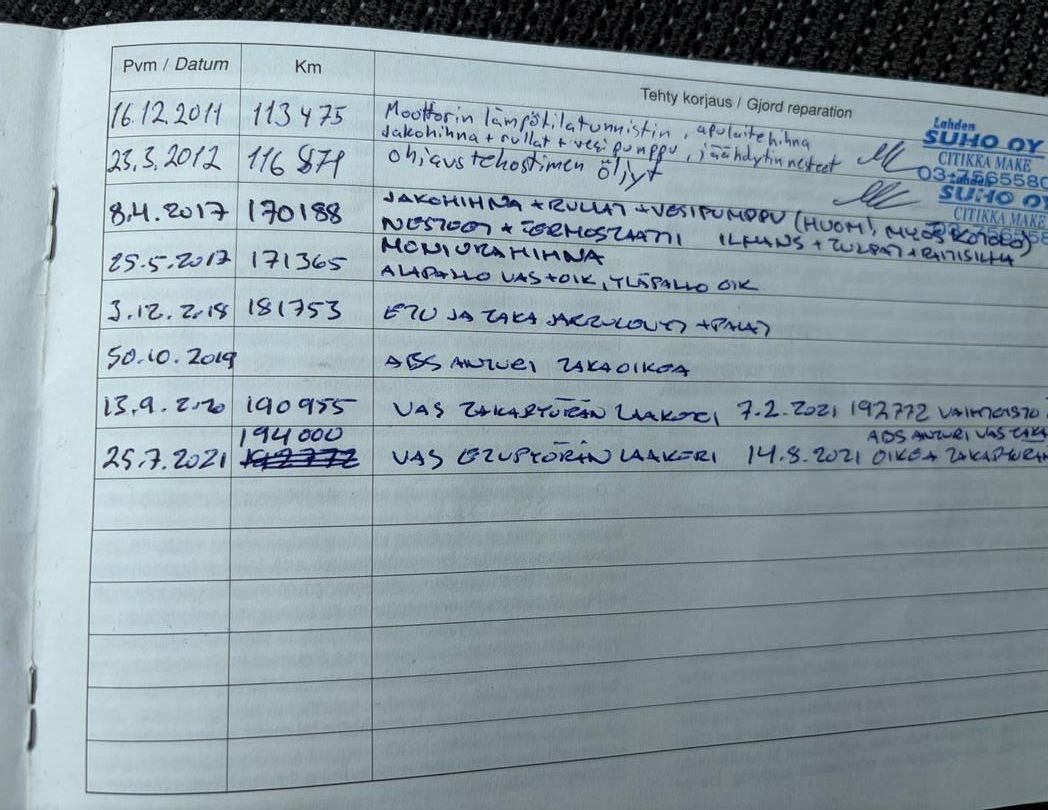 Pvm / Datum Km Tehty korjaus / Gjord reparation
16.12.2011 113475 Moottorin lämpötilatunnistin, apulaitehihna
Jakohihna + rullat + vesipumppu, jäähdytinnesteet
23.3.2012 116871 ohjaustehostimen öljyt
Lahden
SUHO OY
CITIKKA MAKE
03-7565580
Lahden
SUHO OY
CITIKKA MAKE
8.4.2017 170188 JAKOHIHNA + RULLAT + VESIPUMPPU (HUOM! MYÖS KOTELO)
NESTEET + TERMOSTAATTI ILMANS + TULPAT + RAITISILMA
25.5.2017 171365 MONIURAHIHNA
ALAPALLO VAS + OIK, YLÄPALLO OIK
3.12.2018 181753 ETU JA TAKA JARRULEVYT + PALAT
30.10.2019 ABS ANTURI TAKAOIKEA
13.9.2020 190955 VAS TAKAPYÖRÄN LAAKERI 7.2.2021 192772 VAIHTEISTO
194000 ABS ANTURI VAS TAKA
25.7.2021 192772 VAS ETUPYÖRÄN LAAKERI 14.8.2021 OIKEA TAKAPYÖRÄN